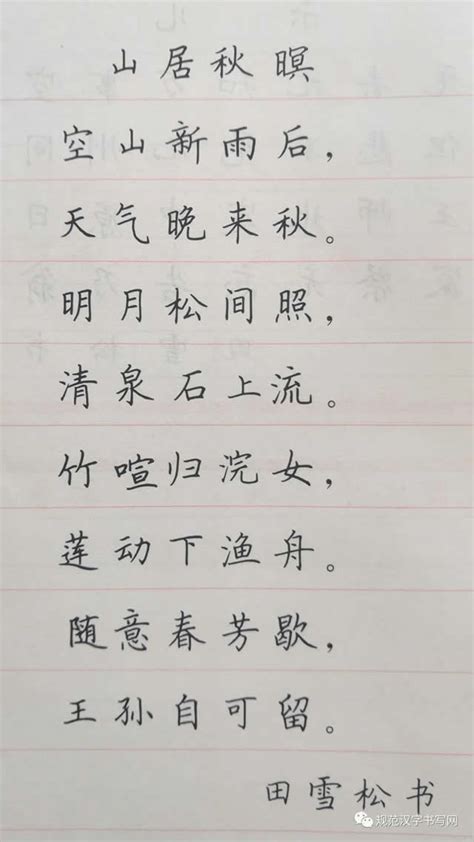 山居秋暝
空山新雨后，
天气晚来秋。
明月松间照，
清泉石上流。
竹喧归浣女，
莲动下渔舟。
随意春芳歇，
王孙自可留。
田雪松书
规范汉字书写网